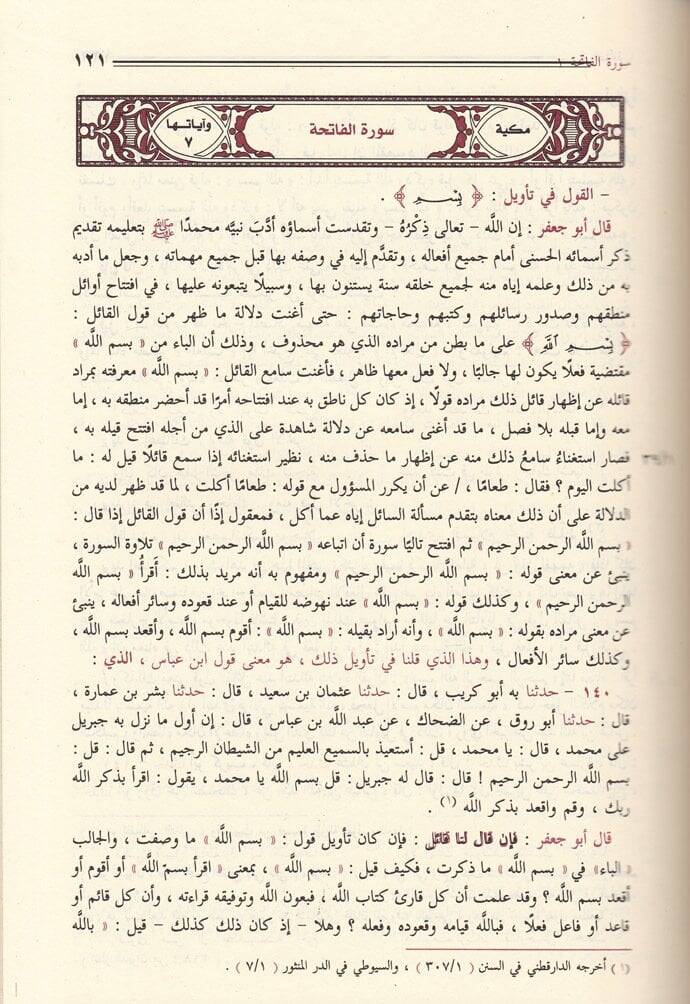 سورة الفاتحة ١
١٢١
مكية
سورة الفاتحة
وآياتها
٧
– القول في تأويل : ﴿ بِسْمِ ﴾ .
قال أبو جعفر : إن اللَّه – تعالى ذِكْرُهُ – وتقدست أسماؤه أدَّبَ نبيَّه محمدًا ﷺ بتعليمه تقديم
ذكر أسمائه الحسنى أمام جميع أفعاله ، وتقدَّم إليه في وصفه بها قبل جميع مهماته ، وجعل ما أدبه
به من ذلك وعلمه إياه منه لجميع خلقه سنة يستنون بها ، وسبيلًا يتبعونه عليها ، في افتتاح أوائل
منطقهم وصدور رسائلهم وكتبهم وحاجاتهم : حتى أغنت دلالة ما ظهر من قول القائل :
﴿ بِسْمِ اللَّهِ ﴾ على ما بطن من مراده الذي هو محذوف ، وذلك أن الباء من « بسم اللَّه »
مقتضية فعلًا يكون لها جالبًا ، ولا فعل معها ظاهر ، فأغنت سامع القائل : « بسم اللَّه » معرفته بمراد
قائله عن إظهار قائل ذلك مراده قولًا ، إذ كان كل ناطق به عند افتتاحه أمرًا قد أحضر منطقه به ، إما
معه وإما قبله بلا فصل ، ما قد أغنى سامعه عن دلالة شاهدة على الذي من أجله افتتح قيله به ،
فصار استغناءُ سامعِ ذلك منه عن إظهار ما حذف منه ، نظير استغنائه إذا سمع قائلًا قيل له : ما
أكلت اليوم ؟ فقال : طعامًا ، / عن أن يكرر المسؤول مع قوله : طعامًا أكلت ، لما قد ظهر لديه من
الدلالة على أن ذلك معناه بتقدم مسألة السائل إياه عما أكل ، فمعقول إذًا أن قول القائل إذا قال :
« بسم اللَّه الرحمن الرحيم » ثم افتتح تاليًا سورة أن اتباعه « بسم اللَّه الرحمن الرحيم » تلاوة السورة ،
ينبئ عن معنى قوله : « بسم اللَّه الرحمن الرحيم » ومفهوم به أنه مريد بذلك : أَقرأُ « بسم اللَّه
الرحمن الرحيم » ، وكذلك قوله : « بسم اللَّه » عند نهوضه للقيام أو عند قعوده وسائر أفعاله ، ينبئ
عن معنى مراده بقوله : « بسم اللَّه » ، وأنه أراد بقيله : « بسم اللَّه » : أقوم بسم اللَّه ، وأقعد بسم اللَّه ،
وكذلك سائر الأفعال ، وهذا الذي قلنا في تأويل ذلك ، هو معنى قول ابن عباس ، الذي :
١٤٠ – حدثنا به أبو كريب ، قال : حدثنا عثمان بن سعيد ، قال : حدثنا بشر بن عمارة ،
قال : حدثنا أبو روق ، عن الضحاك ، عن عبد اللَّه بن عباس ، قال : إن أول ما نزل به جبريل
على محمد ، قال : يا محمد ، قل : أستعيذ بالسميع العليم من الشيطان الرجيم ، ثم قال : قل :
بسم اللَّه الرحمن الرحيم ! قال : قال له جبريل : قل بسم اللَّه يا محمد ، يقول : اقرأ بذكر اللَّه
ربك ، وقم واقعد بذكر اللَّه (١) .
قال أبو جعفر : فإن قال لنا قائل : فإن كان تأويل قول : « بسم اللَّه » ما وصفت ، والجالب
« الباء » في « بسم اللَّه » ما ذكرت ، فكيف قيل : « بسم اللَّه » ، بمعنى « اقرأ بسم اللَّه » أو أقوم أو
أقعد بسم اللَّه ؟ وقد علمت أن كل قارئ كتاب اللَّه ، فبعون اللَّه وتوفيقه قراءته ، وأن كل قائم أو
قاعد أو فاعل فعلًا ، فباللَّه قيامه وقعوده وفعله ؟ وهلا – إذ كان ذلك كذلك – قيل : « باللَّه
(١) أخرجه الدارقطني في السنن ( ٣٠٧/١ ) ، والسيوطي في الدر المنثور ( ٧/١ ) .